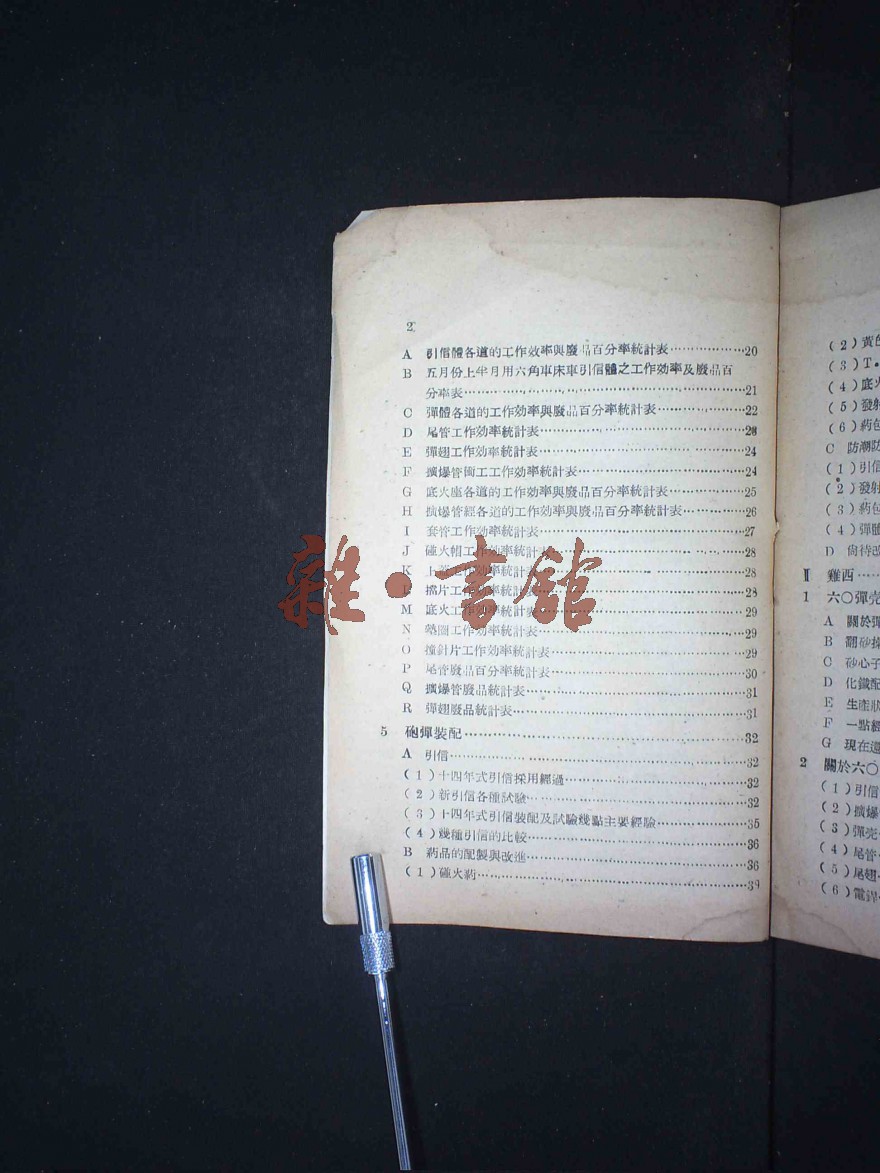 2
A 引信體各道的工作效率與廢品百分率統計表…………………20
B 五月份上半月用六角車床車引信體之工作効率及廢品百
分率表…………………21
C 彈體各道的工作効率與廢品百分率統計表…………………22
D 尾管工作効率統計表…………………23
E 彈翅工作効率統計表…………………24
F 擴爆管衝工工作効率統計表…………………24
G 底火座各道的工作効率與廢品百分率統計表…………………25
H 擴爆管經各道的工作効率與廢品百分率統計表…………………26
I 套管工作効率統計表…………………27
J 碰火帽工作効率統計表…………………28
K 上 工作効率統計表…………………28
L 擋片工作効率統計表…………………28
M 底火工作効率統計表…………………29
N 墊圈工作効率統計表…………………29
O 撞針片工作効率統計表…………………29
P 尾管廢品百分率統計表…………………30
Q 擴爆管廢品統計表…………………31
R 彈翅廢品統計表…………………31
5 砲彈裝配…………………32
A 引信…………………32
(1)十四年式引信採用經過…………………32
(2)新引信各種試驗…………………32
(3)十四年式引信裝配及試驗幾點主要經驗…………………35
(4)幾種引信的比較…………………36
B 葯品的配製與改進…………………36
(1)碰火葯…………………39
(2)黃
(3)T.
(4)底火
(5)發射
(6)葯包
C 防潮防
(1)引信
(2)發射
(3)葯包
(4)彈體
D 尙待改
Ⅱ 雞西…
1 六〇彈壳
A 關於彈
B 翻砂操
C 砂心子
D 化鐵配
E 生產狀
F 一點經
G 現在還
2 關於六〇
(1)引信
(2)擴爆
(3)彈壳
(4)尾管
(5)尾翅
(6)電銲
雜·書館